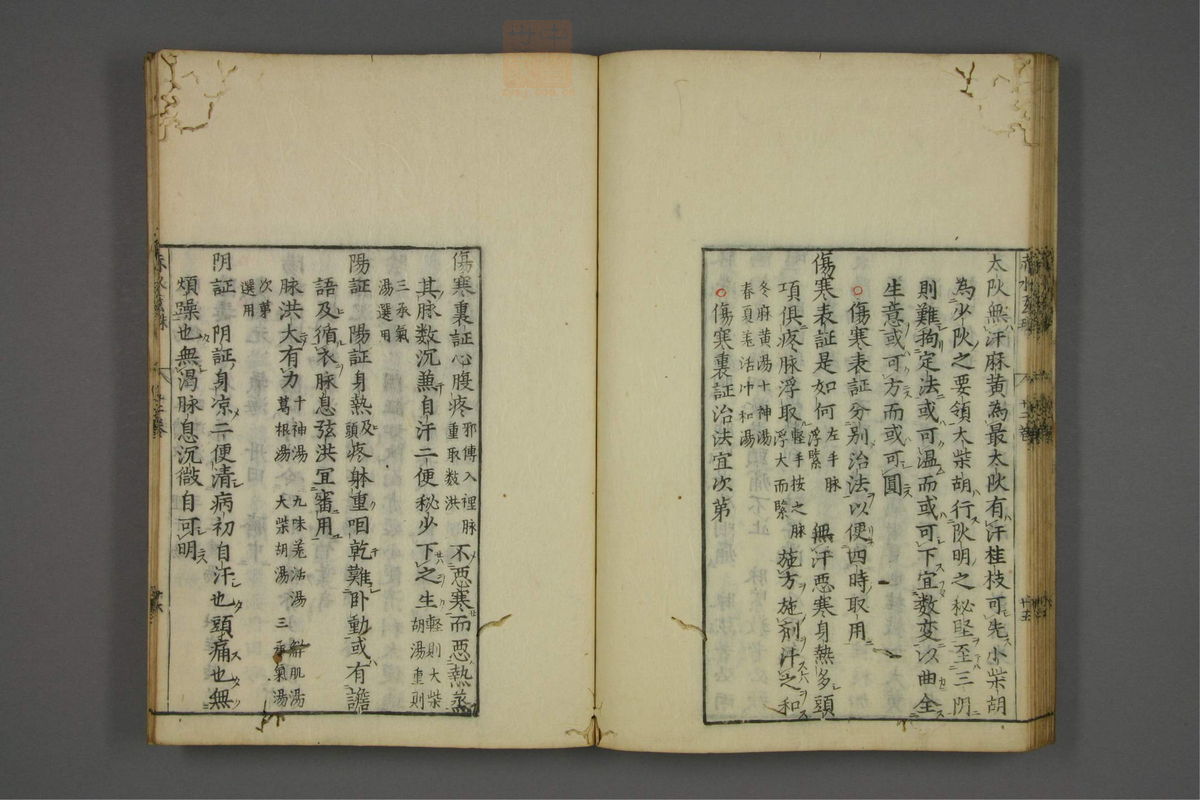 太阦無汗麻黄為最太阦有汗桂枝可先小柴胡
為少阦之要領大柴胡行阦明之秘堅至三阴
則難拘定法或可温而或可下宜数変以曲全
生意或可方而或可圓
傷寒表証分别治法以便四時取用
傷寒表証是如何 左手脉浮緊 無汗惡寒身熱多頭
項俱疼脉浮取 軽手按之脉浮大而緊 施方施剤汗之和
冬麻黄湯十神湯
春夏羗活冲和湯
傷寒裏証治法宜次第
傷寒裏証心腹疼 邪傳入裡脉重取数洪 不惡寒而惡熱蒸
其脉数沉兼自汗二便秘少下之生 軽則大柴胡湯重則
三承氣湯選用
陽証 陽証身熱及頭疼躰重咽乾難卧動或有譫
語及循衣脉息弦洪宜審用
脉洪大有力 十神湯 九味羗活湯 解肌湯
葛根湯 大柴胡湯 三承氣湯
次第選用
阴証 阴証身凉二便清病初自汗也頭痛也無
煩躁也無渴脉息沉微自可明